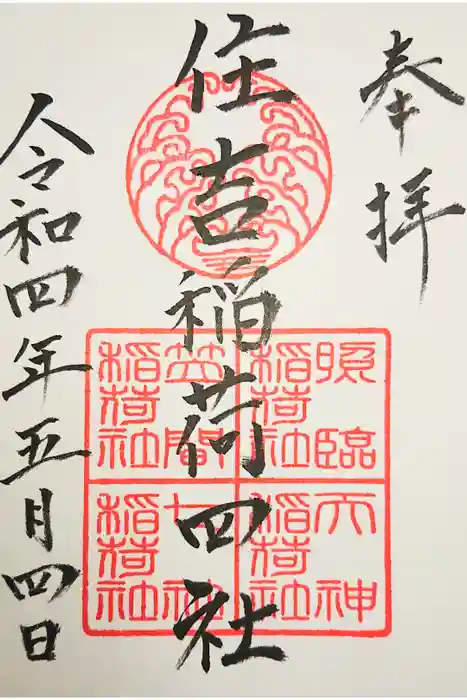 奉拝
住吉稲荷四社
令和四年五月四日
照臨
稲荷社
笠間
稲荷社
天神
稲荷社
七社
稲荷社